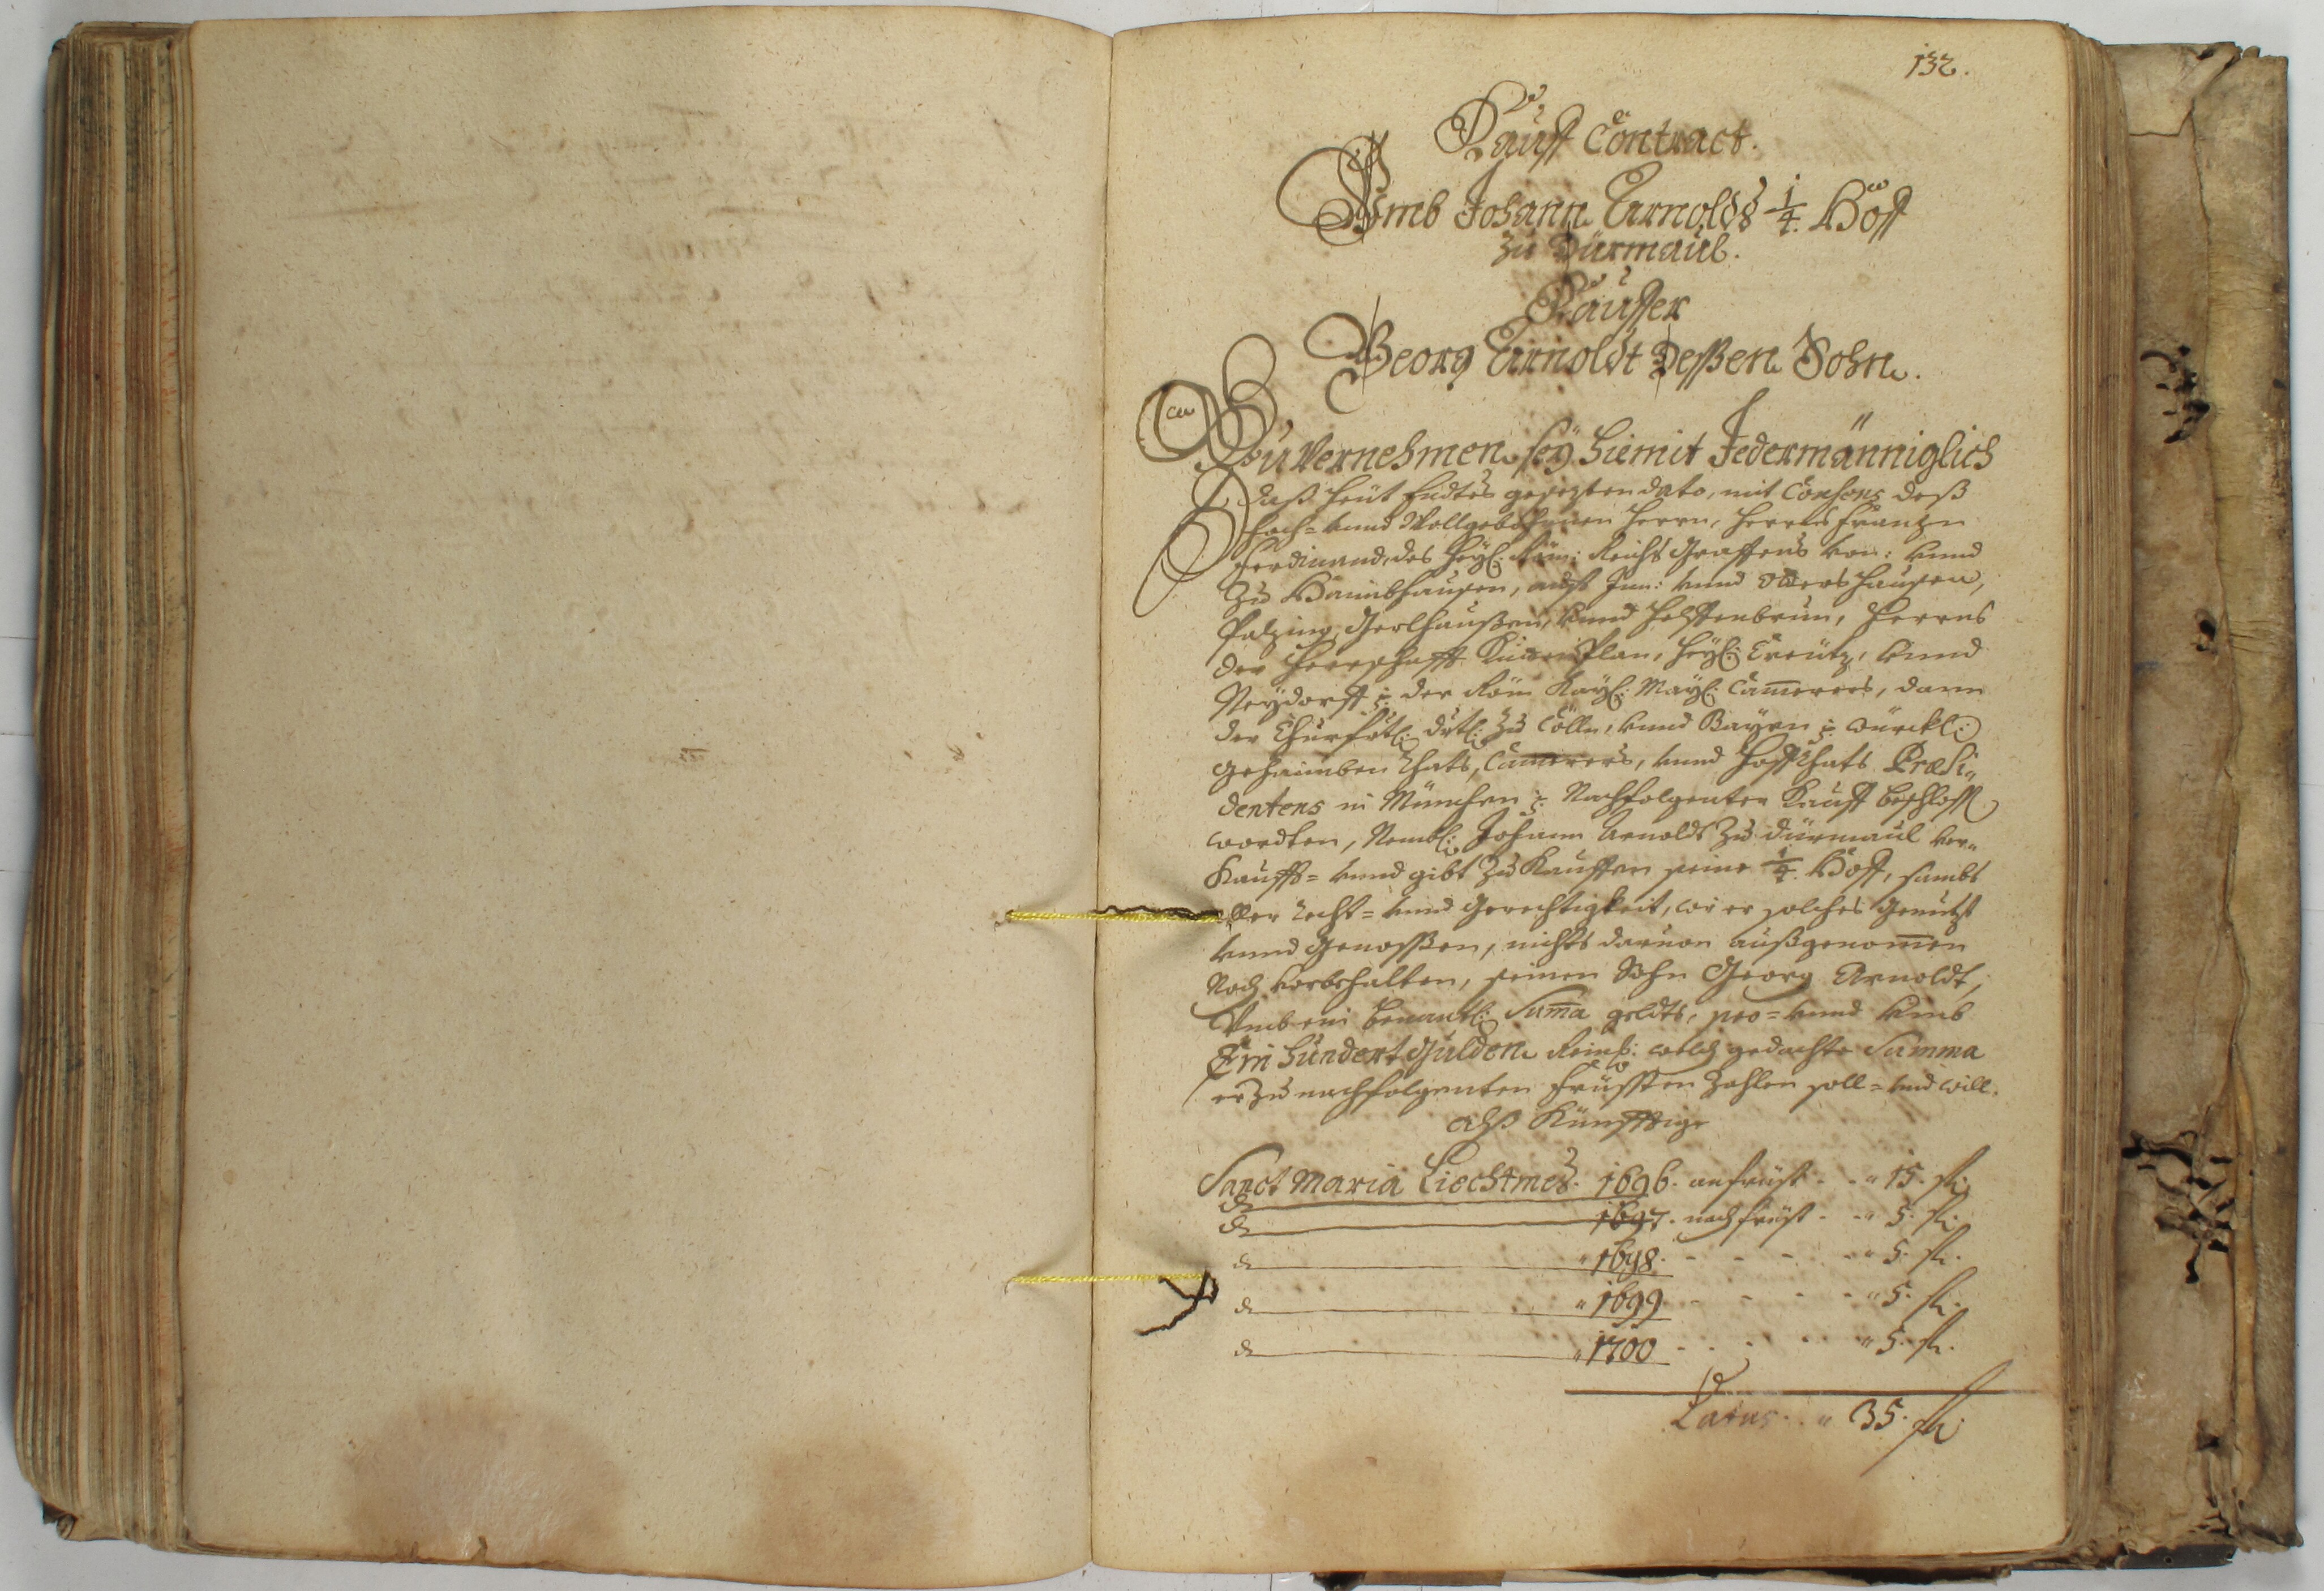 132.
Kauff Contract.
Umb Johann Arnolds 1/4. Hoff
zu Dürmaul.
Kauffer
Georg Arnoldt deßen Sohn.
Zu Vernehmen sey hiemit Jedermänniglich
daß heut Endts gesezten dato, mit Consens deß
Hoch= vnnd Wollgebohrnen Herrn, Herrns Frantzn
Ferdinand, des Heyl: Röm: Reichs Graffens von: vnnd
zu Haimbhausen, auff Inn: vnnd Ottershausen,
Palzing, Gerlhaußen, vnnd Helffenbrun, Herrns
der Herrschafft Kuttenplan, Heyl: Creütz, vnnd
Neydorff der Röm Kayl: Mayl: Camerers, dann
der Churfrtl: drtl: zu Cölln, vnnd Bayrn würckl:
gehaimben Raths, Camerers, vnnd Hoffraths Præsi„
dentens in München Nachfolgenter Kauff beschloss
wordten, Nembl: Johann Arnoldt zu Dürmaul ver„
Kaufft= vnnd gibt zu Kauffen seine 1/4. Hoff, sambt
aller recht= vnnd Gerechtigkeit, wie er solches genutzt
vnnd genossen, nichts daruon außgenomen
Noch vorbehalten, seinen Sohn Georg Arnoldt,
Vmb ein benantl: Suma geldts, pro= vnnd vmb
Ein hundert gulden Reinß: welch gedachte Summa
er zu nachfolgenten Früsten zahlen soll= vnd will.
Alß Künfftige
Sanct Maria Liechtmeß. 1696. anfrüst - - „ 15. fl:
d 1697. nachfrüst - - „ 5. fl:
d „ 1698. - - - - „ 5. fl.
d „ 1699 - - - - „ 5. fl.
d „ 1700 - - - - „ 5. fl.
Latus . . „ 35. fl: